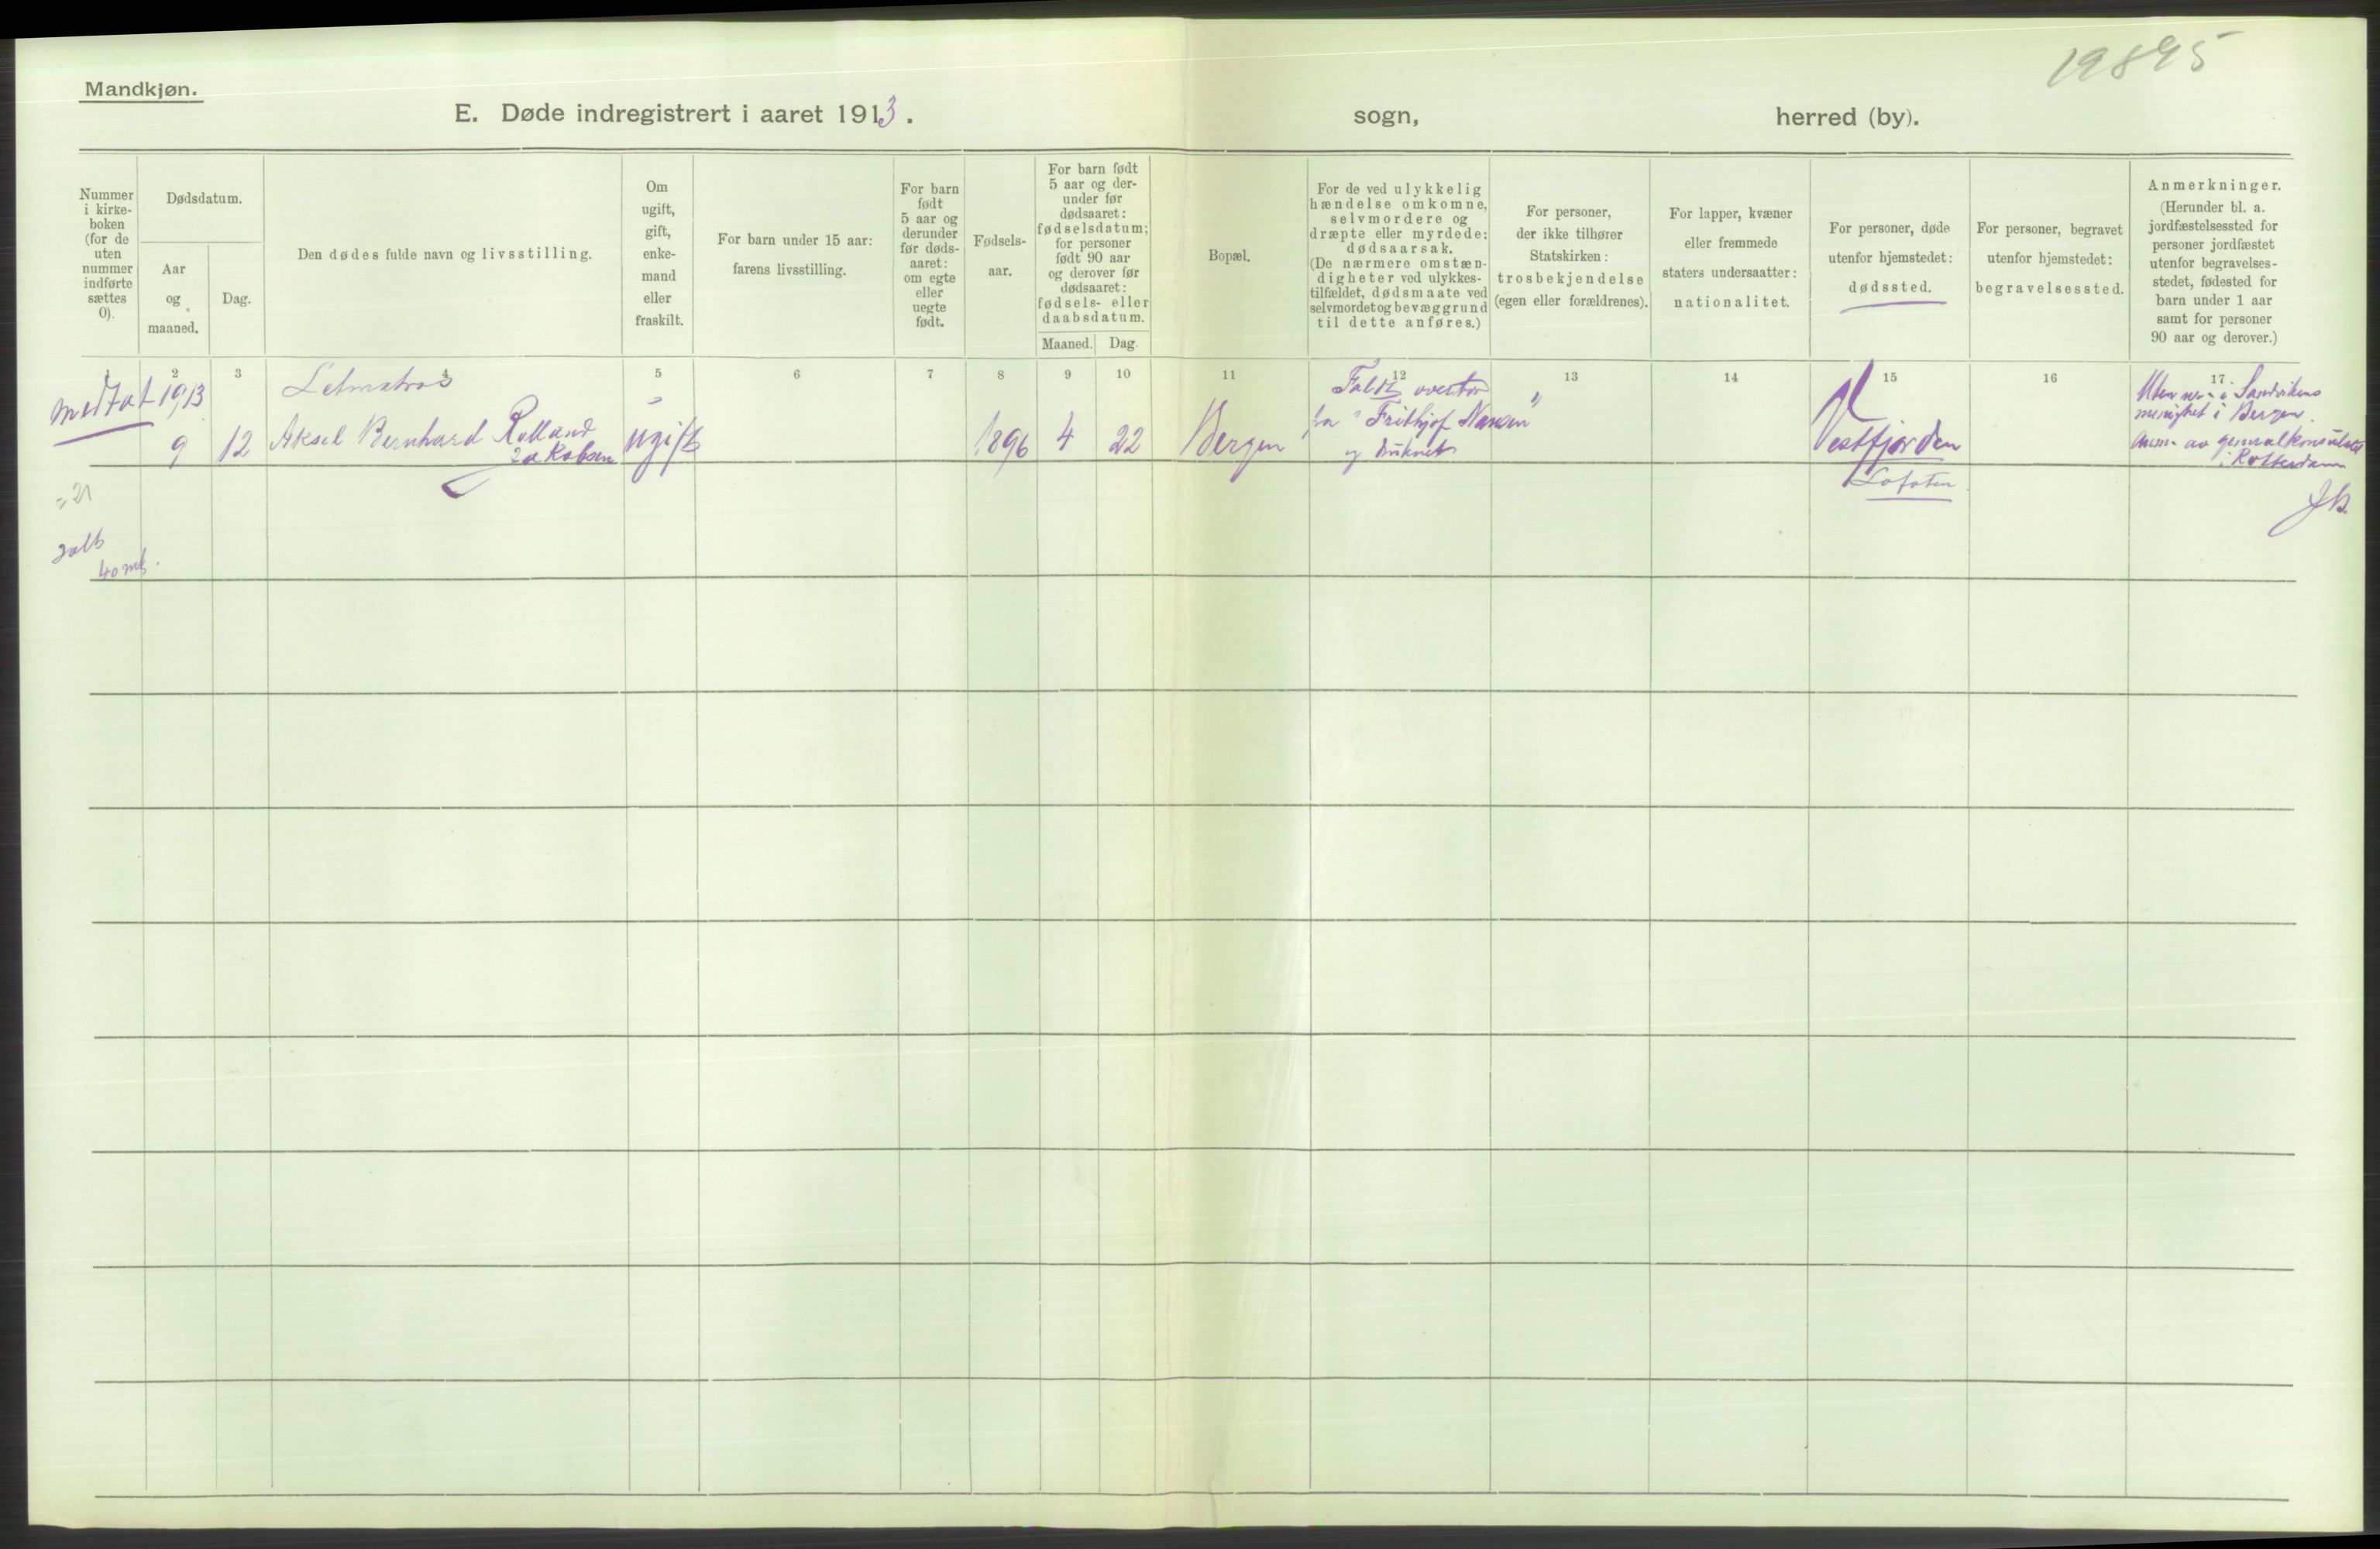 19895
Mandkjøn.
E. Døde indregistrert i aaret 1913.
sogn,
herred (by).
Nummer
i kirke-
boken
(for de
uten
nummer
indførte
sættes
0).
Dødsdatum.
Aar
og
maaned.
Dag.
Den dødes fulde navn og livsstilling.
Om
ugift,
gift,
enke-
mand
eller
fraskilt.
For barn under 15 aar:
farens livsstilling.
For barn
født
5 aar og
derunder
før døds-
aaret:
om egte
eller
uegte
født.
Fødsels-
aar.
For barn født
5 aar og der-
under før
dødsaaret:
fødselsdatum;
for personer
født 90 aar
og derover før
dødsaaret:
fødsels- eller
daabsdatum.
Maaned.
Dag.
Bopæl.
For de ved ulykkelig
hændelse omkomne,
selvmordere og
dræpte eller myrdede:
dødsaarsak.
(De nærmere omstæn-
digheter ved ulykkes-
tilfældet, dødsmaate ved
selvmordet og bevæggrund
til dette anføres.)
For personer,
der ikke tilhører
Statskirken:
trosbekjendelse
(egen eller forældrenes).
For lapper, kvæner
eller fremmede
staters undersaatter:
nationalitet.
For personer, døde
utenfor hjemstedet:
dødssted.
For personer, begravet
utenfor hjemstedet:
begravelsessted.
Anmerkninger.
(Herunder bl. a.
jordfæstelsessted for
personer jordfæstet
utenfor begravelses-
stedet, fødested for
barn under 1 aar
samt for personer
90 aar og derover.)
1 2 3 4 5 6 7 8 9 10 11 12 13 14 15 16 17
medtat
1913
9
12
Letmatros
Aksel Bernhard Rolland
Jakobsen
ugift
1896
4
22
Bergen
Faldt overbord
fra "Frithjof Nansen"
og druknet
Vestfjorden
Lofoten
Uten nr. i Sandvikens
menighet i Bergen.
Anm. av generalkonsulatet
i Rotterdam
40 mk.